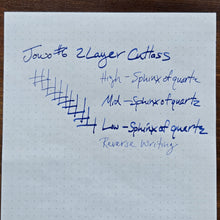 Jowo #6 2 Layer Cutlass
High - Sphinx of quartz
Mid - Sphinx of quartz
Low - Sphinx of quartz
Reverse Writing